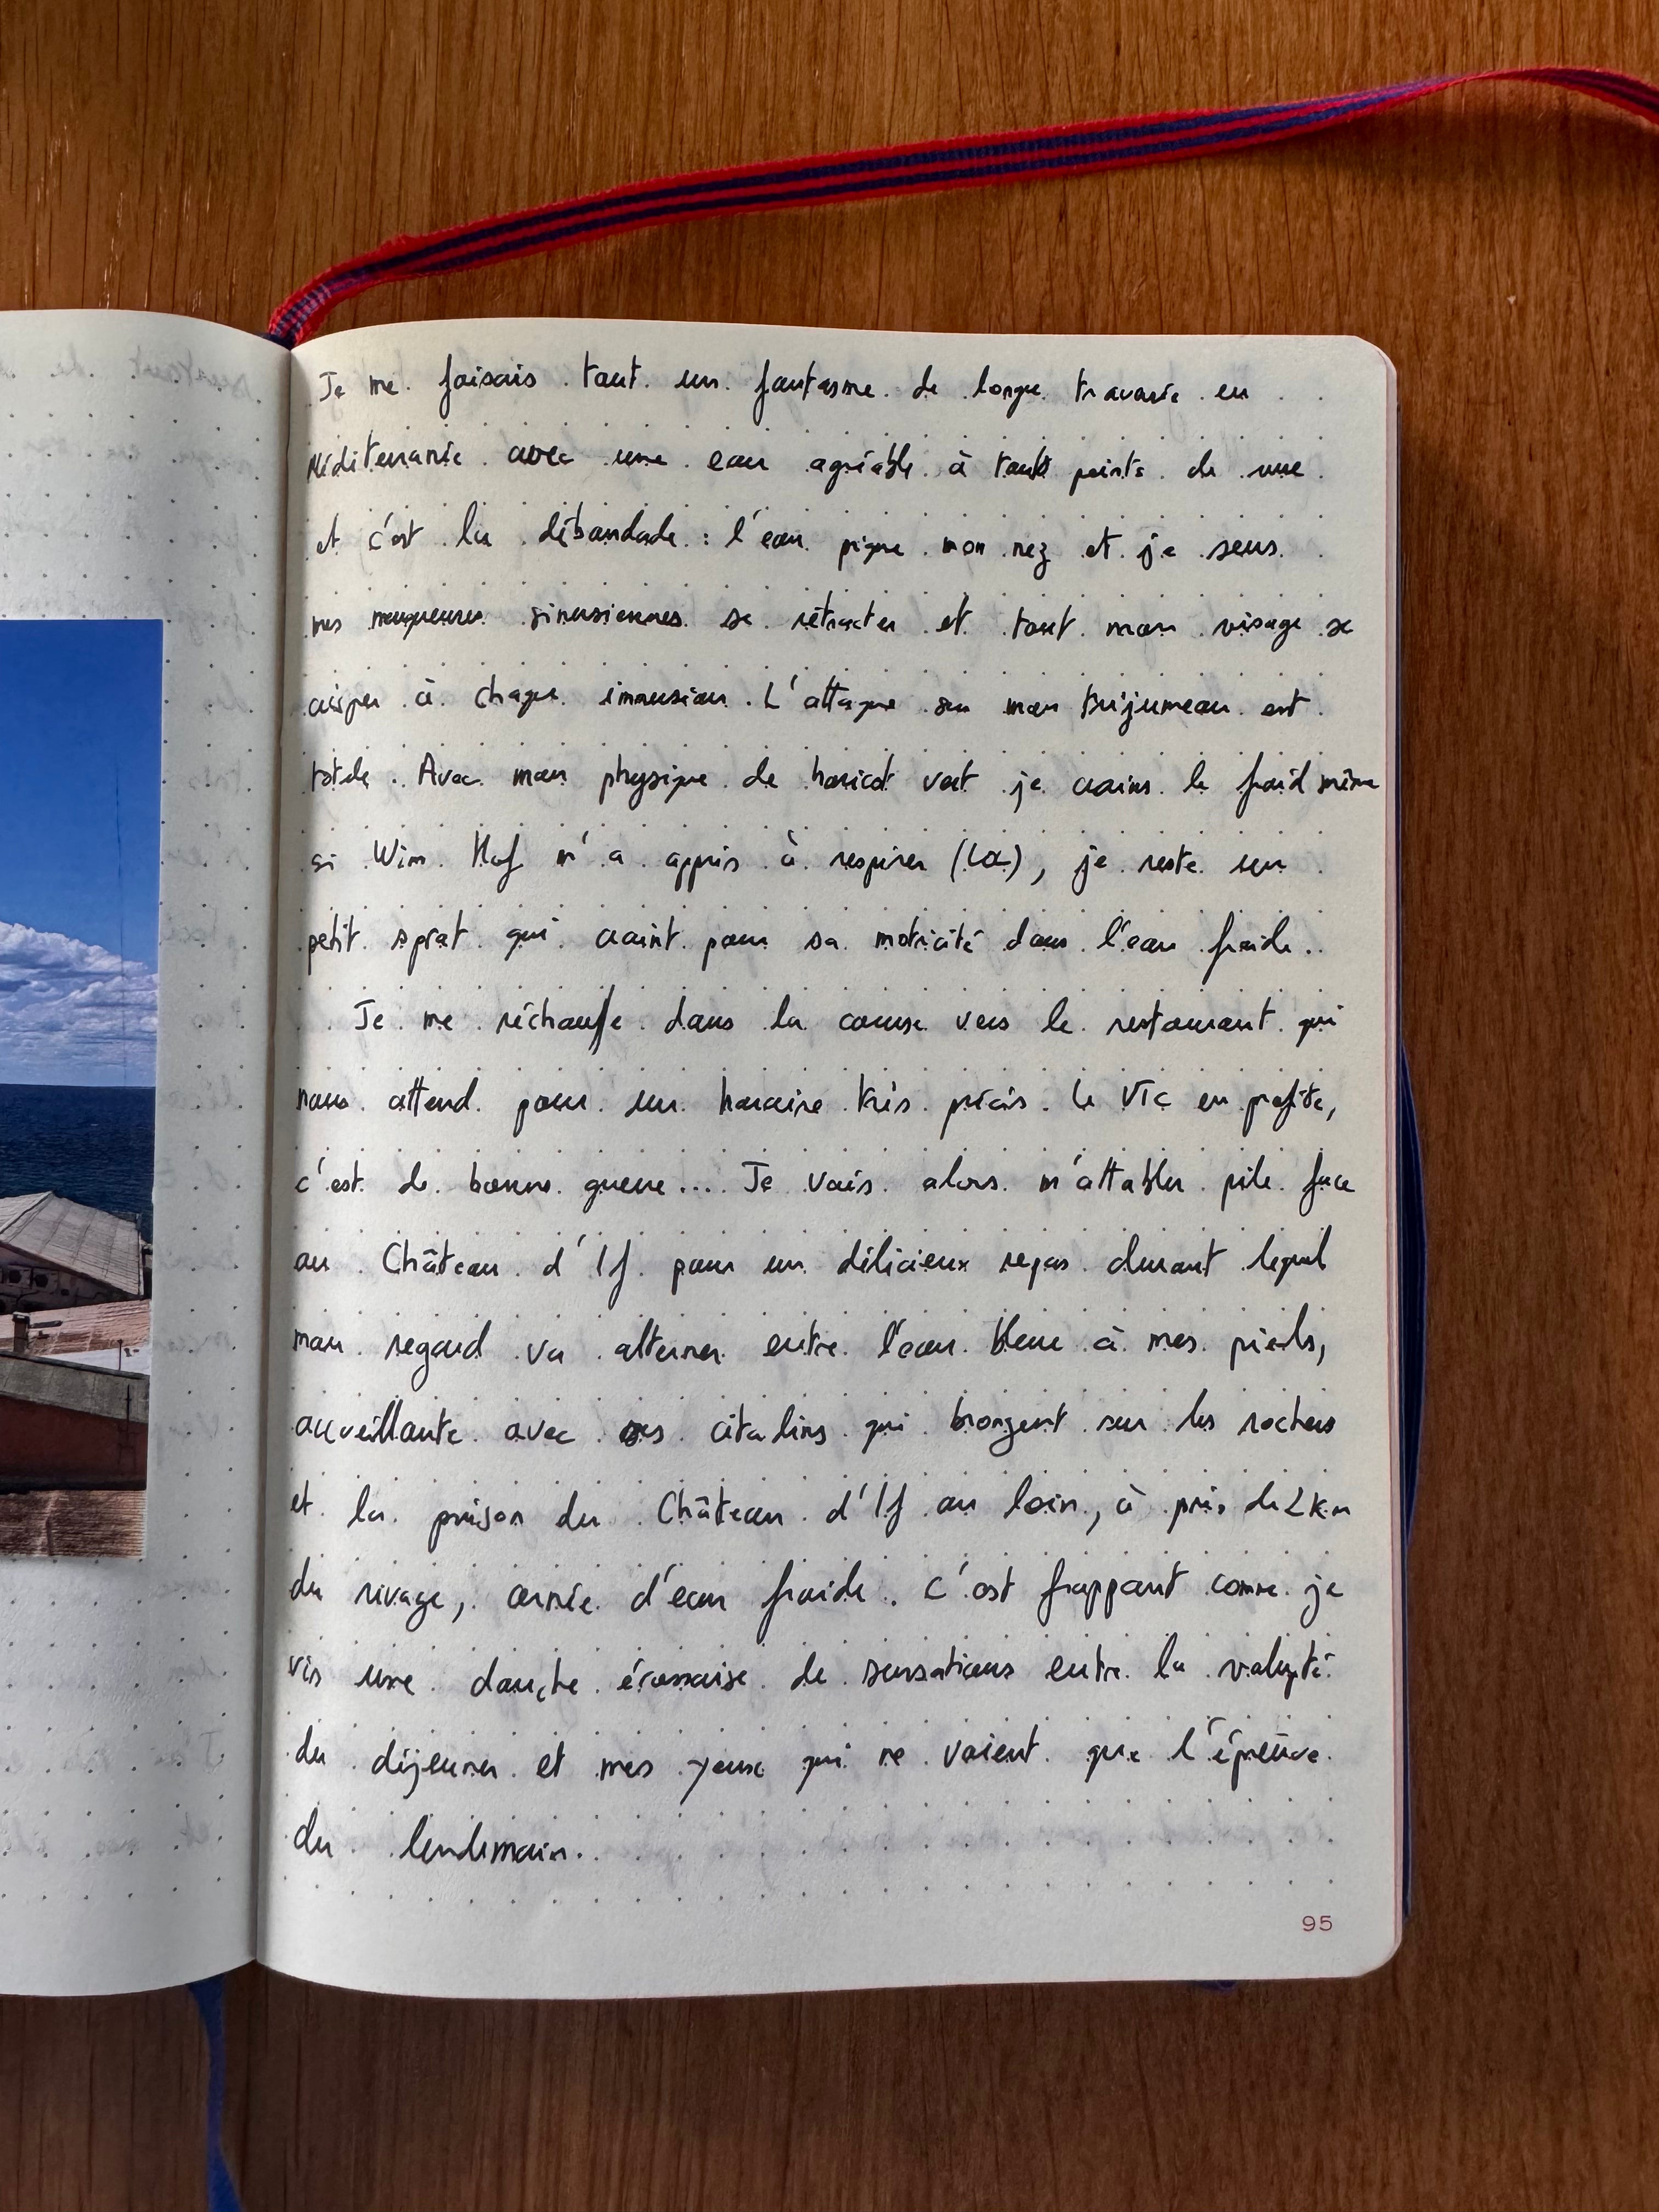 Je me faisais tout un fantasme de longue traversée en
Méditerranée avec une eau agréable à touts points de vue
et c'est la débandade : l'eau pique mon nez et je sens
mes muqueuses sinusiennes se rétracter et tout mon visage se
crisper à chaque immersion. L'attaque sur mon trijumeau est
totale. Avec mon physique de haricot vert je crains le froid même
si Wim Hof m'a appris à respirer (), je reste un
petit sprat qui craint pour sa motricité dans l'eau froide..
Je me réchauffe dans la course vers le restaurant qui
nous attend pour un horaire très précis. Le VTC en profite,
c'est de bonne guerre... Je vais alors m'attabler pile face
au Château d'If pour un délicieux repas durant lequel
mon regard va alterner entre l'eau bleue à mes pieds,
accueillante avec ses citadins qui bronzent sur les rochers
et la prison du Château d'If au loin, à près de 2km
du rivage, cernée d'eau froide. C'est frappant comme je
vis une douche écossaise de sensations entre la volupté
du déjeuner et mes yeux qui ne voient que l'épreuve
du lendemain.
95